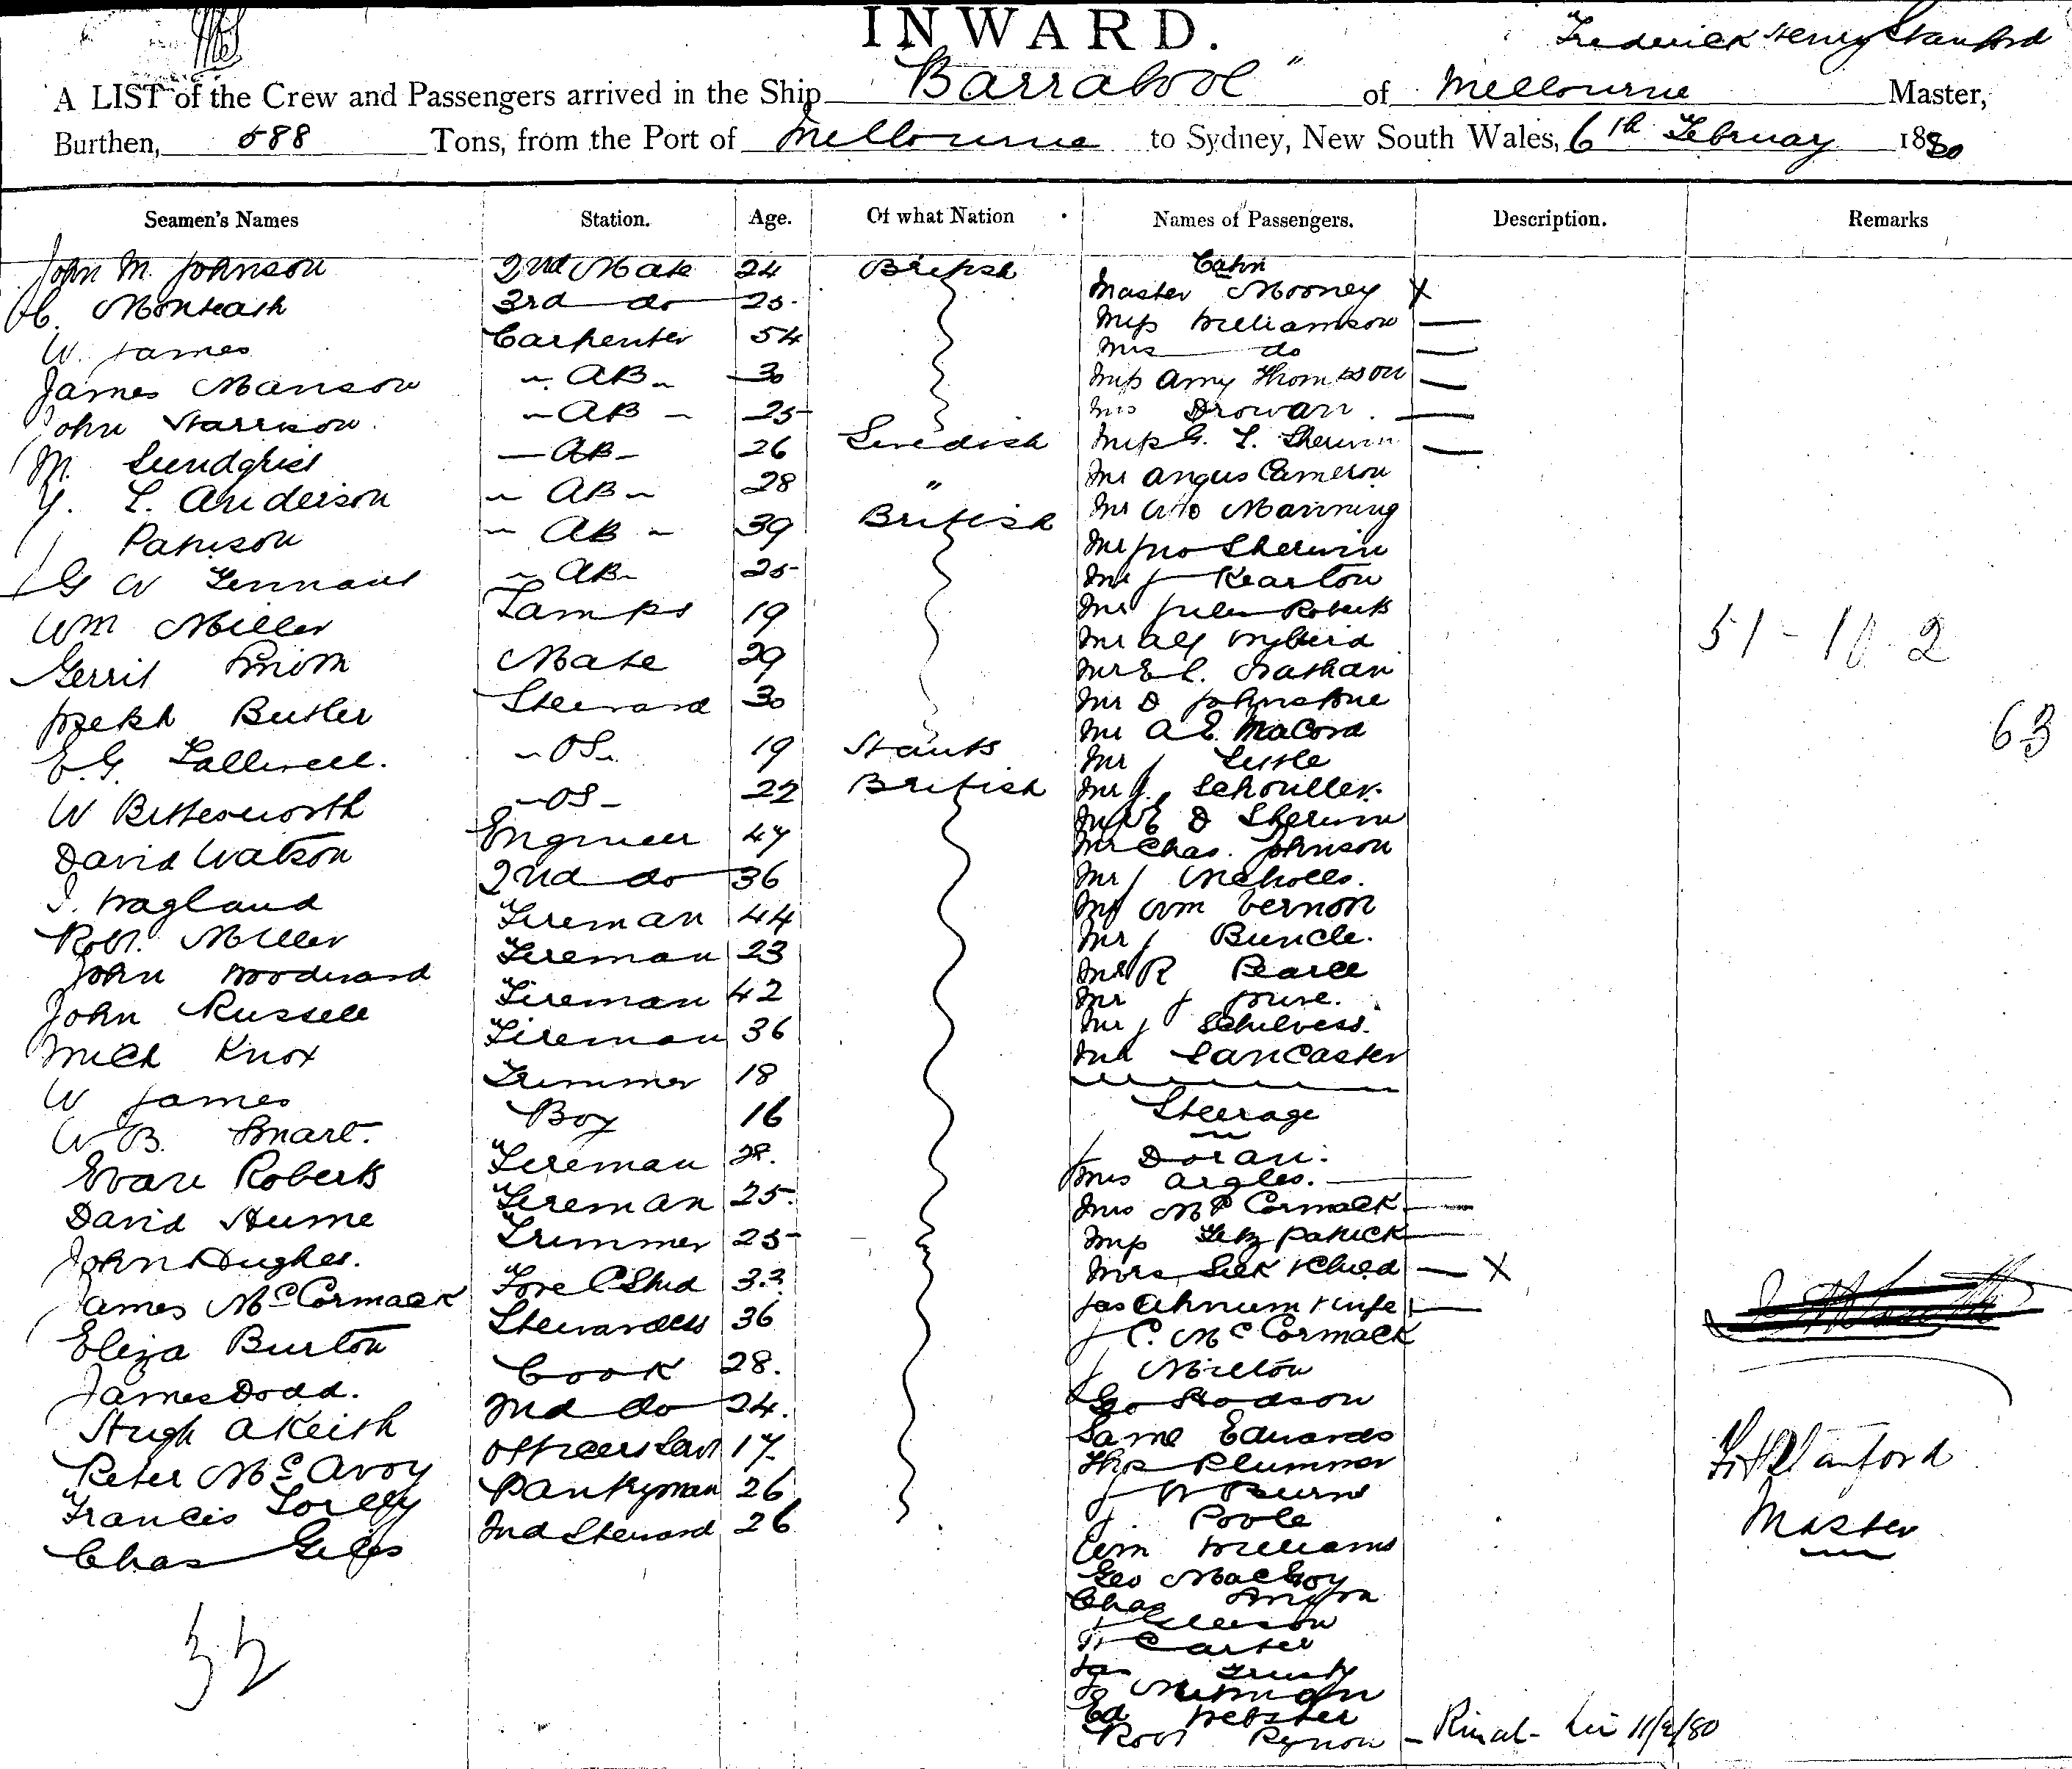 INWARD.
Frederick Henry Stanford
A LIST of the Crew and Passengers arrived in the Ship "Barrabool" of Melbourne Master,
Burthen, 588 Tons, from the Port of Melbourne to Sydney, New South Wales, 6th February 1880
Seamen's Names Station. Age. Of what Nation Names of Passengers. Description. Remarks
John M. Johnson 2nd Mate 24 British
Monteath 3rd do 25
W. James Carpenter 54
James Manson AB 30
John Harrison AB 25
M. Lundqvist AB 26 Swedish
L. Anderson AB 28 "
Patison AB 39 British
G W Tennant AB 25
Wm Miller Lamps 19
Gerrit Smith Mate 29
Joseph Butler Steward 30
E.G. Lalliwell. OS 19 Hants
W Bettesworth OS 22 British
David Watson Engineer 47
Wagland 2nd do 36
Robt. Miller Fireman 44
John Woodward Fireman 23
John Russell Fireman 42
Mich Knox Fireman 36
W James Trimmer 18
W B. Smart. Boy 16
Evan Roberts Fireman 28.
David Hume Fireman 25.
John Hughes. Trimmer 25
James McCormack Fore C Stwd 33
Eliza Burton Stewardess 36
James Dodd. Cook 28.
Hugh A Keith 2nd do 24.
Peter McAvoy Officers Servt 17
Francis Pantryman 26
Chas Giles 2nd Steward 26
32
Cabin
Master Mooney X
Miss Williamson —
Mrs do —
Miss Amy Thompson —
Mrs Drowan. —
Miss G. L. Sherwin —
Mr Angus Cameron
Mr Manning
Mr Jno Sherwin
Mr J Kearton
Mr Jules Roberts
Mr Alf
Mr E C. Nathan
Mr D Johnstone
Mr A E. MaCord
Mr J Little
Mr J. Schouller.
Mr E D Sherwin
Mr Chas. Johnson
Mr J Nicholls.
Mr Wm Vernon
Mr J Buncle.
Mr R Pearce
Mr J
Mr J
Mr Lancaster
Steerage
J Doran.
Mrs Argles. —
Mrs McCormack —
Miss Fitzpatrick —
Mrs Silk & Child — X
Jas & wife —
J C. McCormack
J Milton
Geo Hodson
Saml Edwards
Thos Plummer
J W Burns
J. Poole
Wm Williams
Geo
Chas
J Gleeson
W Carter
Jas Trusty
Newman
Ed Webster
Robt Rynon
11/2/80
51 - 10 2
63
F H Stanford
Master